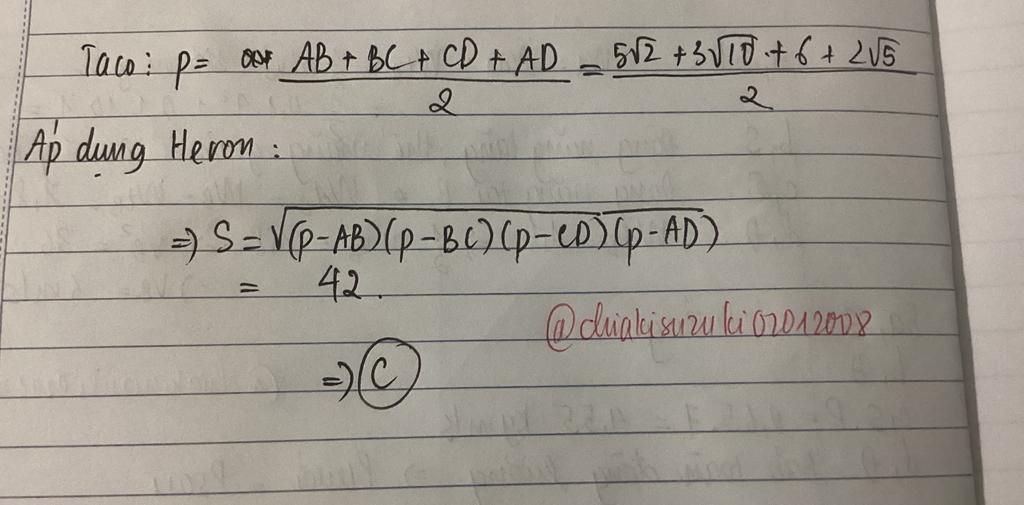 Ta có: p = AB + BC + CD + AD / 2 = 5√2 + 3√10 + 6 + 2√5 / 2
Áp dụng Heron:
=> S = √(p-AB)(p-BC)(p-CD)(p-AD)
= 42.
@chiakisuzuki02012008
=> C